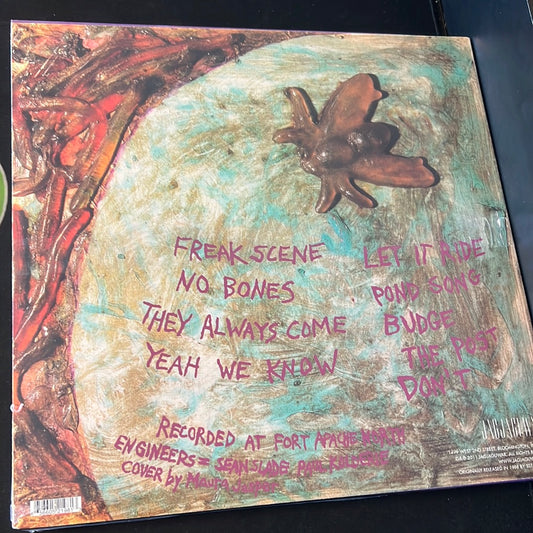 FREAK SCENE
NO BONES
THEY ALWAYS COME
YEAH WE KNOW
LET IT RIDE
POND SONG
BUDGE
THE POST
DON'T
RECORDED AT FORT APACHE NORTH
ENGINEERS = SEAN SLADE, PAUL KOLDERIE
COVER by Maura Jasper
JAGJAGUWAR
1499 WEST 2ND STREET, BLOOMINGTON,
2011 JAGJAGUWAR. ALL RIGHTS
WWW.JAGJAGUWAR
ORIGINALLY RELEASED IN 1988 BY SST